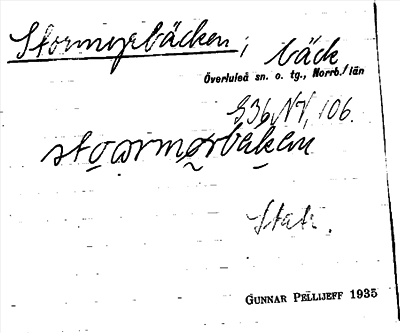 Stormyrbäcken; bäck
Överluleå sn. o. tg., Norrb. län
G36, NV, 106.
stoarmørbeken
Stat.
GUNNAR PELLIJEFF 1935